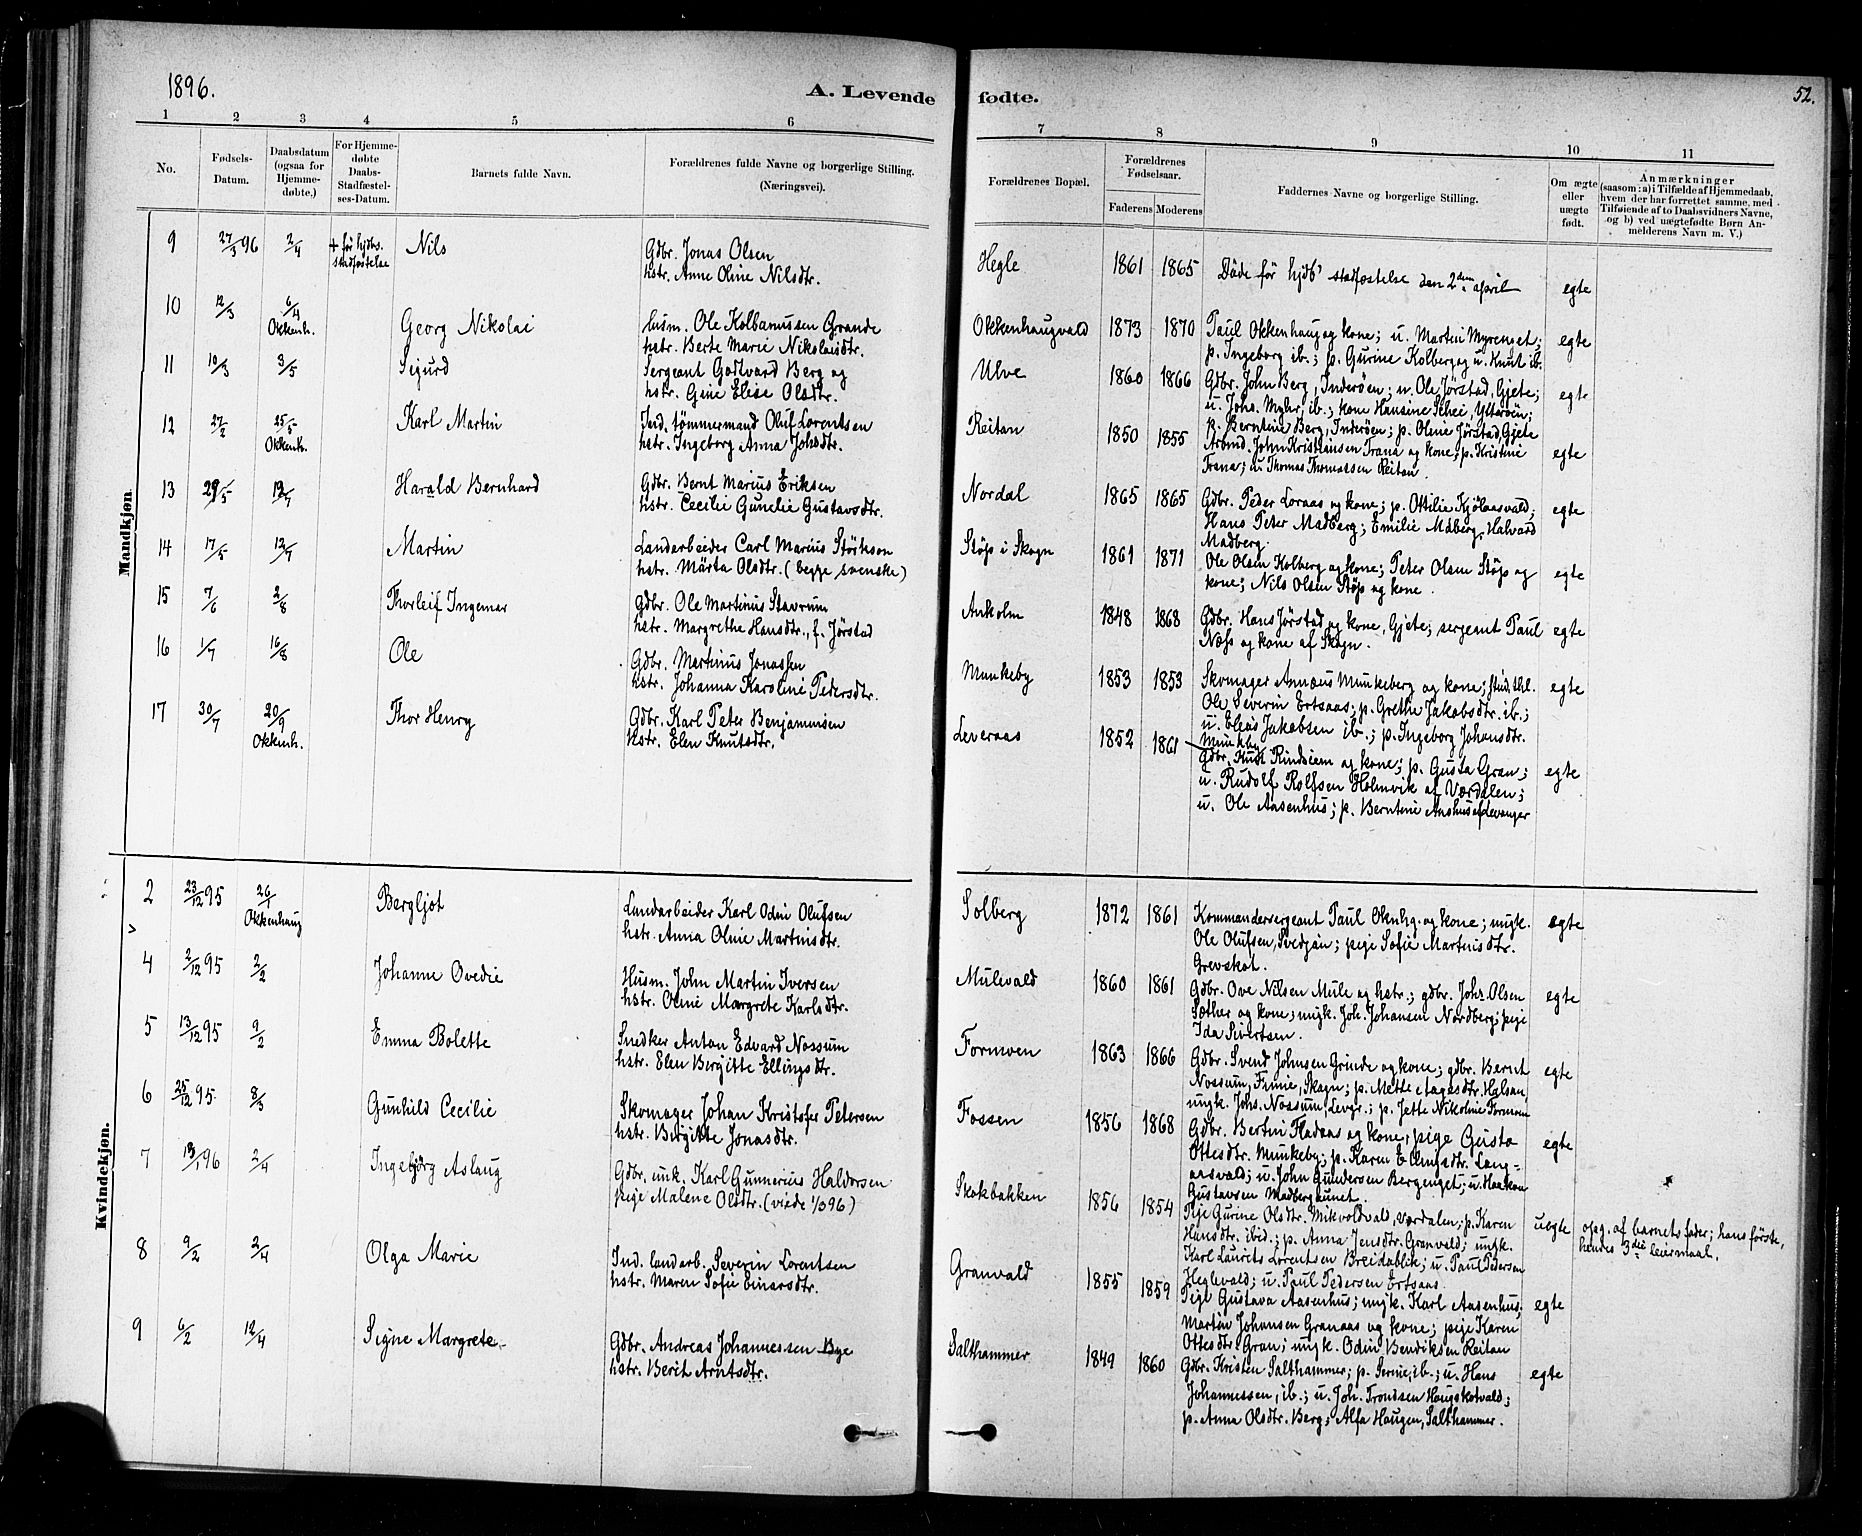 1896.
A. Levende
1 2 3 4 5 6
No.
Fødsels-Datum.
Daabsdatum (ogsaa for Hjemme-døbte.)
For Hjemme-døbte Daabs-Stadfæstel-ses-Datum.
Barnets fulde Navn.
Forældrenes fulde Navne og borgerlige Stilling. (Næringsvei).
Mandkjøn.
9 27/3 96 2/4 + før hjdbs. stadfæstelse Nils Gdbr. Jonas Olsen
hstr. Anne Oline Nilsdtr.
10 12/3 6/4 Okkenh. Georg Nikolai husm. Ole Kolbanussen Grande
hstr. Berte Marie Nikolaisdtr.
11 10/3 3/5 Sigurd Sergeant Godtvard Berg og
hstr. Gine Elise Olsdtr.
12 27/2 25/5 Okkenh. Karl Martin Ind. tømmermand Oluf Lorentsen
hstr. Ingeborg Anna Johsdtr.
13 29/5 12/7 Harald Bernhard Gdbr. Bernt Marius Eriksen
hstr. Cecilie Gunelie Gustavsdtr.
14 17/5 12/7 Martin Landarbeider Carl Marius Störkson
hstr. Märta Olsdtr. (begge svenske)
15 7/6 2/8 Thorleif Ingemar Gdbr. Ole Martinus Stavrum
hstr. Margrethe Hansdtr., f. Jørstad
16 1/7 16/8 Ole Gdbr. Martinus Jonassen
hstr. Johanna Karoline Pedersdtr.
17 30/7 20/9 Okkenh. Thor Henry Gdbr. Karl Peter Benjaminsen
hstr. Elen Knutsdtr.
Kvindekjøn.
2 23/12 95 26/1 Okkenhaug Bergljot Landarbeider Karl Odin Olufsen
hstr. Anna Oline Martinsdtr.
4 2/12 95 2/2 Johanne Ovedie Husm. John Martin Iversen
hstr. Oline Margrete Karlsdtr.
5 13/12 95 9/2 Emma Bolette Snedker Anton Edvard Nossum
hstr. Elen Bergitte Ellingsdtr.
6 25/12 95 8/3 Gunhild Cecilie Skomager Johan Kristofer Petersen
hstr. Bergitte Jonasdtr.
7 13/1 96 2/4 Ingebjørg Aslaug Gdbr. unk. Karl Gunnerius Haldorsen
pige Malene Olsdtr. (viede 1/3 96)
8 9/2 2/4 Olga Marie Ind. landarb. Severin Lorentsen
hstr. Maren Sofie Einarsdtr.
9 6/2 12/4 Signe Margrete Gdbr. Andreas Johannessen Bye
hstr. Berit Arntsdtr.
fødte.
52.
7 8 9 10 11
Forældrenes Bopæl.
Forældrenes Fødselsaar.
Faderens Moderens
Faddernes Navne og borgerlige Stilling.
Om ægte eller uægte født.
Anmærkninger
(saasom: a) i Tilfælde af Hjemmedaab,
hvem der har forrettet samme, med
Tilføiende af to Daabsvidners Navne,
og b) ved uægtefødte Børn An-
melderens Navn m. V.)
Hegle 1861 1865 Døde før hjdbs stadfæstelse den 2den april egte
Okkenhaugvald 1873 1870 Paul Okkenhaug og kone; u. Martin Myrenset; egte
p. Ingeborg ib.; p. Gurine Kolberg og u. Knut ib.
Ulve 1860 1866 Gdbr. John Berg, Inderøen; u. Ole Jørstad, Gjete; egte
u. Johs. Myhr, ib.; kone Hansine Schei, Ytterøen;
p. Berntine Berg, Inderøen; p. Oline Jørstad, Gjete
Reitan 1850 1855 John Kristiansen Trana og kone; p. Kristine egte
Trana; u. Thomas Thomassen Reitan.
Nordal 1865 1865 Gdbr. Peder Loraas og kone; p. Ottilie Kjølaasvald; egte
Hans Peter Madberg; Emilie Madberg, Halvard
Madberg.
Støp i Skogn 1861 1871 Ole Olsen Kolberg og kone; Peter Olsen Støp og egte
kone; Nils Olsen Støp og kone.
Ankolm 1848 1868 Gdbr. Hans Jørstad og kone, Gjete; sergeant Paul egte
Næss og kone af Skogn.
Munkeby 1853 1853 Skomager Annæus Munkeberg og kone; stud. thl. egte
Ole Severin Ertsaas; p. Grethe Jakobsdtr. ib.;
u. Elias Jakobsen ib.; p. Ingeborg Johansdtr.
Munkeby
Leveraas 1852 1861 Gdbr. Knut Rindsem og kone; p. Gusta Gran; egte
u. Rudolf Rolfsen Holmvik af Værdalen;
u. Ole Aasenhus; p. Berntine Aashus af Levanger
Solberg 1872 1861 Kommandersergeant Paul Oknhg. og kone; ungk. egte
Ole Olufsen, Svedjan; pige Sofie Martinsdtr.
Grevskot.
Mulevald 1860 1861 Gdbr. Ove Nilsen Mule og hstr.; gdbr. Johs. Olsen egte
Sæther og kone; ungk. Joh. Johansen Nordberg; pige
Ida Sivertsen.
Formoen 1863 1866 Gdbr. Svend Johnsen Grinde og kone; gdbr. Bernt egte
Nossum, Finne, Skogn; p. Mette Aagesdtr. Halsan,
ungk. Johs. Nossum, Levgr.; p. Jette Nikoline Formoen
Fossen 1856 1868 Gdbr. Bertin Fladaas og kone; pige Gusta egte
Ottesdtr. Munkeby; p. Karen Ellingsdtr. Lang-
aasvald; u. John Gundersen Bergenget; u. Haakon
Gustavsen Madbergaunet.
Skokbakken 1856 1854 Pige Gurine Olsdtr. Mikvoldvald, Værdalen; p. Karen uegte opg. af barnets fader; hans første,
Hansdtr. ibid.; p. Anna Jensdtr. Granvald; ungk. hendes 3die leiermaal.
Karl Laurits Lorentsen Breidablik; u. Paul Pedersen
Heglevald; u. Paul Pedersen Ertsaas.
Granvald 1855 1859 Pige Gustava Aasenhus; ungk. Karl Aasenhus; egte
Martin Johansen Granaas og kone; pige Karen
Ottesdtr. Gran; ungk. Odin Bendiksen Reitan
Salthammer 1849 1860 Gdbr. Kristen Salthammer; p. Serine, ib.; u. Hans egte
Johannessen, ib.; u. Joh. Trondsen Haugskotvald;
p. Anna Olsdtr. Berg; Alfa Haugen, Salthammer.